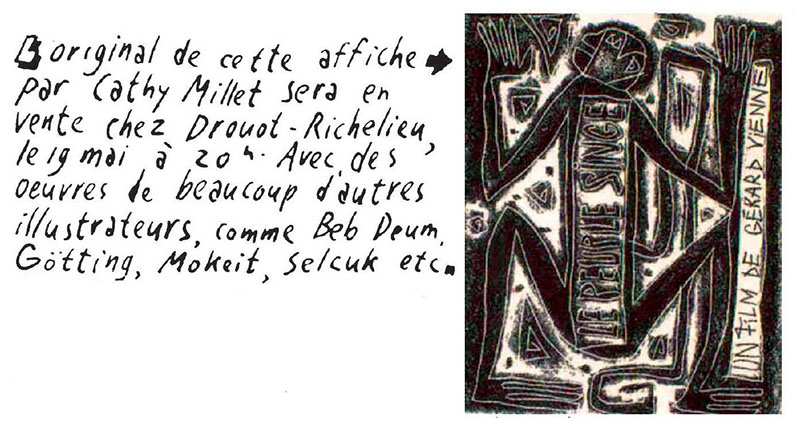 L'original de cette affiche
par Cathy Millet sera en
vente chez Drouot-Richelieu,
le 19 mai à 20 h. Avec des
oeuvres de beaucoup d'autres
illustrateurs, comme Beb Deum,
Götting, Mokeit, Selcuk etc.
LE PEUPLE SINGE
UN FILM DE GÉRARD VIENNE